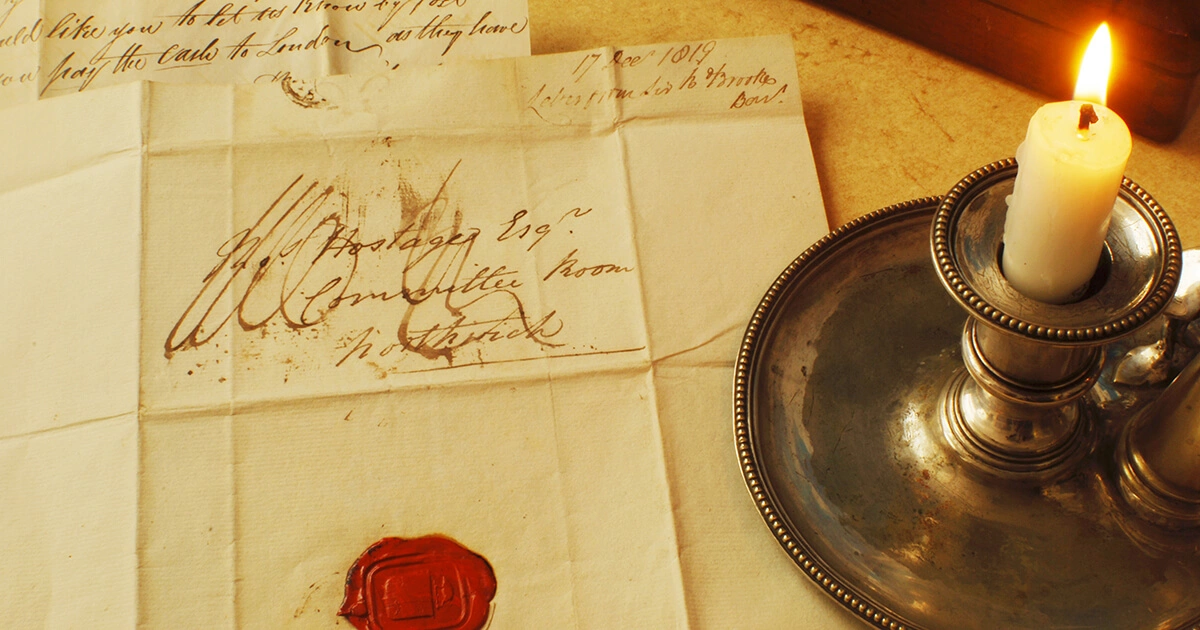 uld like you to let us know by post
you pay the cash to London as they have
17 Dec 1819
Letter from Sir R Brooke
Bar.t
Hostage Esq.r
Committee Room
Northwich